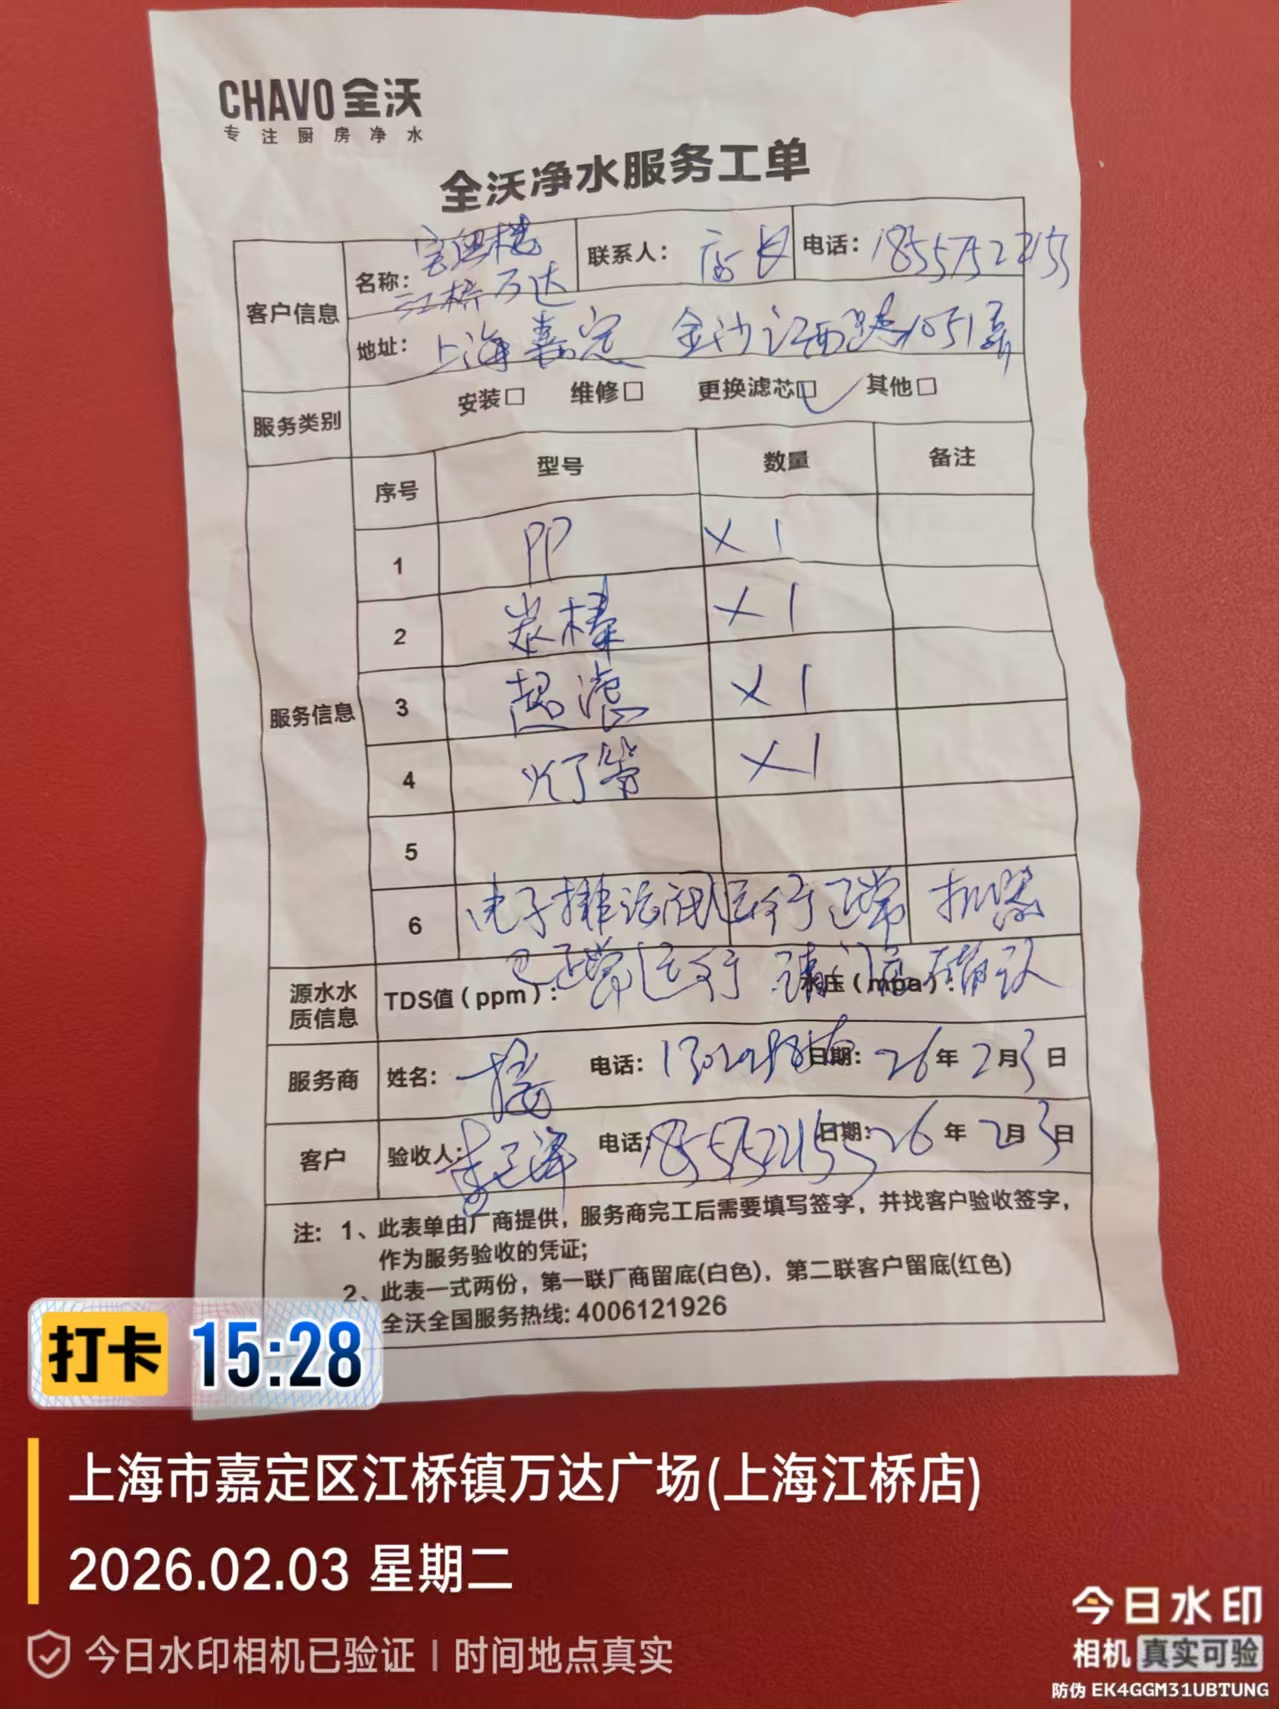 CHAVO 全沃
专注厨房净水
全沃净水服务工单
客户信息
名称：
江桥万达
联系人： 店长
电话： 18557522155
地址： 上海嘉定 金沙江西路1051弄
服务类别
安装□ 维修□ 更换滤芯□✓ 其他□
服务信息
序号 型号 数量 备注
1 PP X 1
2 炭棒 X 1
3 超滤 X 1
4 灯管 X 1
5
6 电子排污阀运行正常 机器
已正常运行 请门店确认
源水水质信息
TDS值（ppm）： 水压（mpa）：
服务商 姓名： 电话： 日期： 26年2月3日
客户 验收人： 电话： 18557522155 日期： 26年2月3日
注： 1、此表单由厂商提供，服务商完工后需要填写签字，并找客户验收签字，
作为服务验收的凭证；
2、此表一式两份，第一联厂商留底(白色)，第二联客户留底(红色)
全沃全国服务热线: 4006121926
打卡 15:28
上海市嘉定区江桥镇万达广场(上海江桥店)
2026.02.03 星期二
今日水印相机已验证 | 时间地点真实
今日水印
相机 真实可验
防伪 EK4GGM31UBTUNG